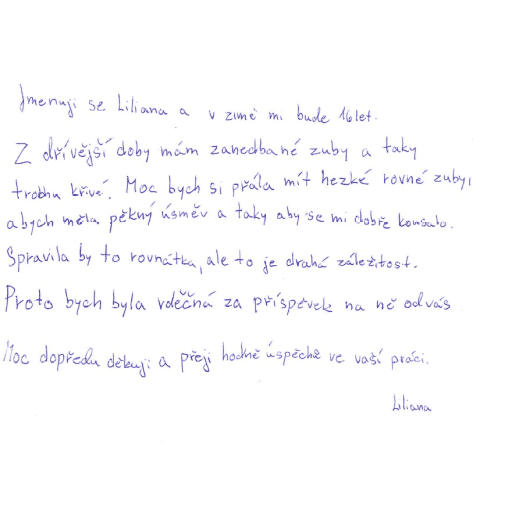 Jmenuji se Liliana a v zimě mi bude 16 let.
Z dřívější doby mám zanedbané zuby a taky
trochu křivé. Moc bych si přála mít hezké rovné zuby,
abych měla pěkný úsměv a taky aby se mi dobře kousalo.
Spravila by to rovnátka, ale to je drahá záležitost.
Proto bych byla vděčná za příspěvek na ně od vás
Moc dopředu děkuji a přeji hodně úspěchů ve vaší práci.
Liliana